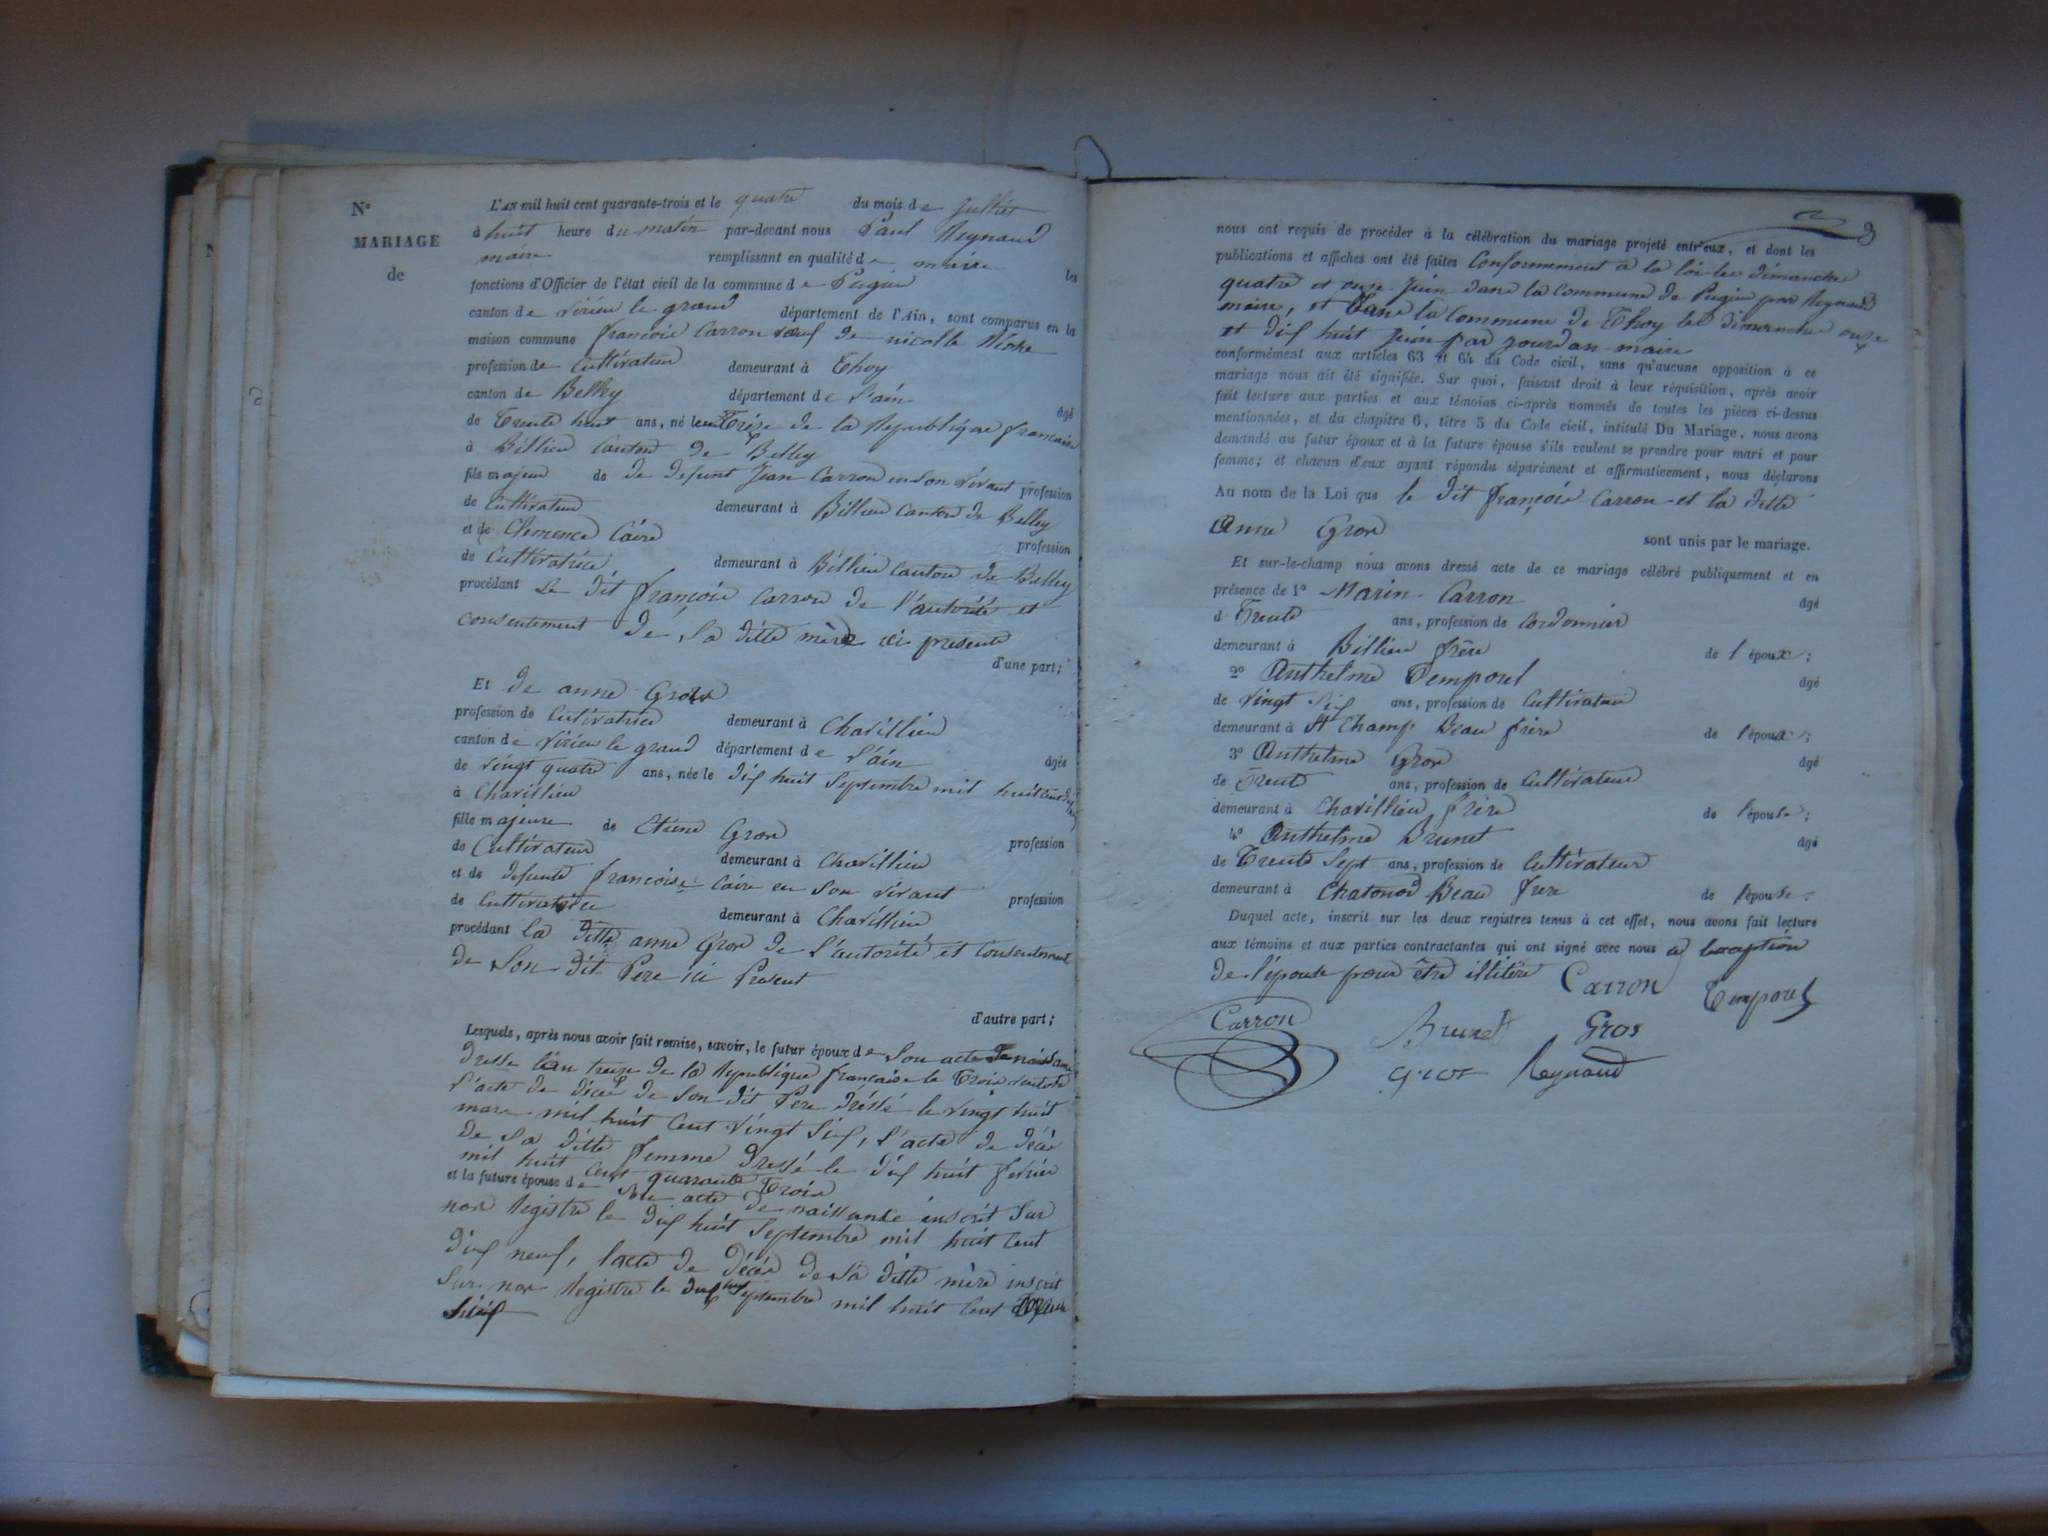 No
MARIAGE
de
L'AN mil huit cent quarante-trois et le quatre du mois de Jullict
à huit heure du matin par-devant nous Paul Reynaud
maire remplissant en qualité de maire les
fonctions d'Officier de l'état civil de la commune de Pugieu
canton de virieu le grand département de l'Ain, sont comparus en la
maison commune françois Carron veuf de nicolle
profession de Cultivateur demeurant à Thoy
canton de Belley département de l'ain âgé
de Trente huit ans, né le Treize de la Republique francaise
à Billieu Canton de Belley
fils majeur de de defunt Jean Carron en son vivant profession
de Cultivateur demeurant à Billieu Canton de Belley
et de Clemence Caire profession
de Cultivatrice demeurant à Billieu Canton de Belley
procédant Le dit françois Carron de l'autorité et
consentement de sa ditte mère ici presente
d'une part;
Et de anne Gros
profession de Cultivatrice demeurant à Chavillieu
canton de virieu le grand département de l'ain âgée
de vingt quatre ans, née le dix huit Septembre mil huit cent
à Chavillieu
fille majeure de Etiene Gros profession
de Cultivateur demeurant à Chavillieu
et de defunte francoise Caire en son vivant profession
de Cultivatrice demeurant à Chavillieu
procédant La ditte anne Gros de l'autorité et consentement
de Son dit Pere ici Present
d'autre part;
Lesquels, après nous avoir fait remise, savoir, le futur époux de Son acte de naissance
dresse l'an treize de la Republique francaise le Trois ventose
l'acte de décés de son dit Pere dréssé le vingt huit
mars mil huit Cent vingt Six, l'acte de décés
de sa ditte femme dressé le dix huit fevrier
mil huit cent quarante Trois
et la future épouse de Son acte de naissance inscrit sur
nos Registre le dix huit Septembre mil huit Cent
dix neuf, l'acte de décés de sa ditte mère inscrit
Sur nos Registre le dix huit Septembre mil huit Cent

nous ont requis de procéder à la célébration du mariage projeté entr'eux, et dont les
publications et affiches ont été faites Conformement a la loi les dimanches
quatre et onze juin dans la Commune de Pugieu par Reynaud
maire, et Dans la Commune de Thoy les dimanches onze
et dix huit juin par jourdan maire
conformément aux articles 63 et 64 du Code civil, sans qu'aucune opposition à ce
mariage nous ait été signifiée. Sur quoi, faisant droit à leur réquisition, après avoir
fait lecture aux parties et aux témoins ci-après nommés de toutes les pièces ci-dessus
mentionnées, et du chapitre 6, titre 5 du Code civil, intitulé Du Mariage, nous avons
demandé au futur époux et à la future épouse s'ils veulent se prendre pour mari et pour
femme; et chacun d'eux ayant répondu séparément et affirmativement, nous déclarons
Au nom de la Loi que le dit françois Carron et la ditte
Anne Gros sont unis par le mariage.
Et sur-le-champ nous avons dressé acte de ce mariage célébré publiquement et en
présence de 1º Marin Carron âgé
d Trente ans, profession de Cordonnier
demeurant à Billieu frère de l époux;
2º Anthelme Temporel âgé
de vingt Six ans, profession de Cultivateur
demeurant à St Champ Beau frère de l'époux;
3º Anthelme Gros âgé
de Trente ans, profession de Cultivateur
demeurant à Chavillieu frère de l'épouse;
4º Anthelme Brunet âgé
de Trente Sept ans, profession de Cultivateur
demeurant à Chatonod Beau frere de l'épouse.
Duquel acte, inscrit sur les deux registres tenus à cet effet, nous avons fait lecture
aux témoins et aux parties contractantes qui ont signé avec nous a lexception
de l'épouse pour être illitéré Carron Temporel
Carron Brunet Gros
gros Reynaud